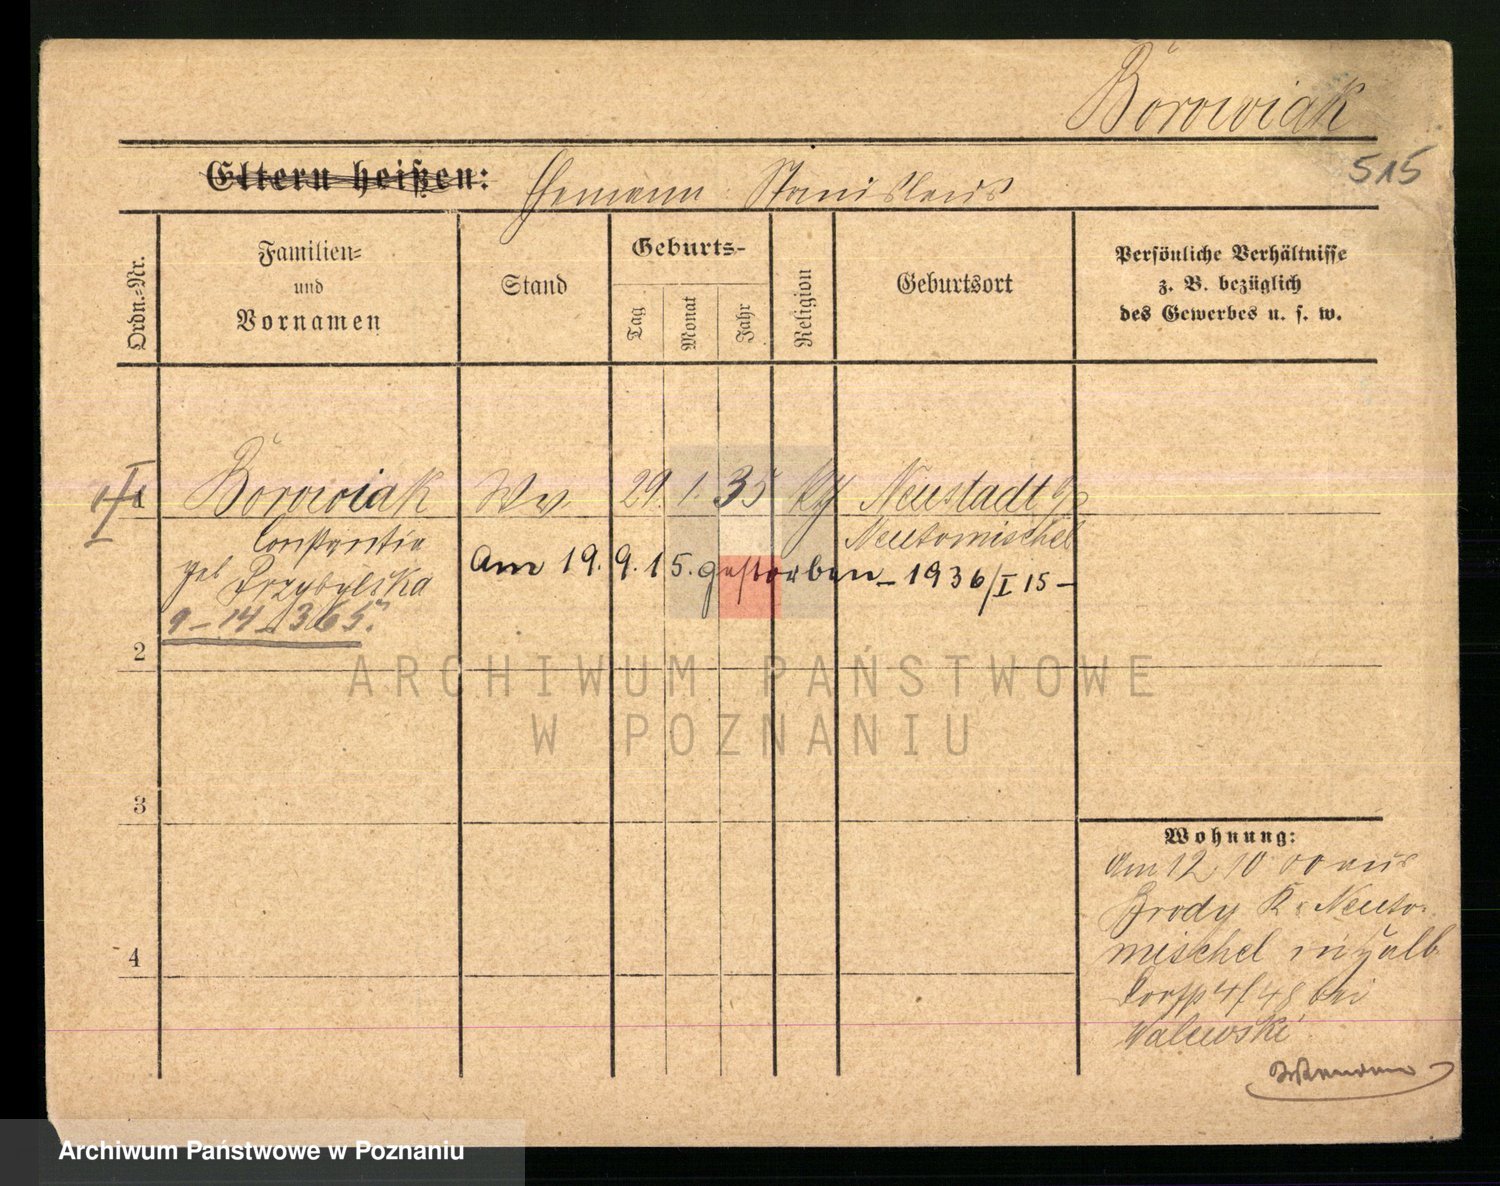 Borowiak
515
Eltern heißen: Ehemann Stanislaus
Ordn.-Nr.
Familien-
und
Vornamen
Stand
Geburts-
Tag
Monat
Jahr
Religion
Geburtsort
Persönliche Verhältnisse
z. B. bezüglich
des Gewerbes u. s. w.
1 Borowiak Ww 29. 1. 35 Neustadt
Constantia Neutomischel
geb Przybylska
Am 19. 9. 15. gestorben – 1936/I 15 –
9 – 14 – 365.
2
3
4
Wohnung:
Am 12 10 00 aus
Brody Kr Neuto-
mischel
4/48 bei
Walewski
ARCHIWUM PAŃSTWOWE
W POZNANIU
Archiwum Państwowe w Poznaniu